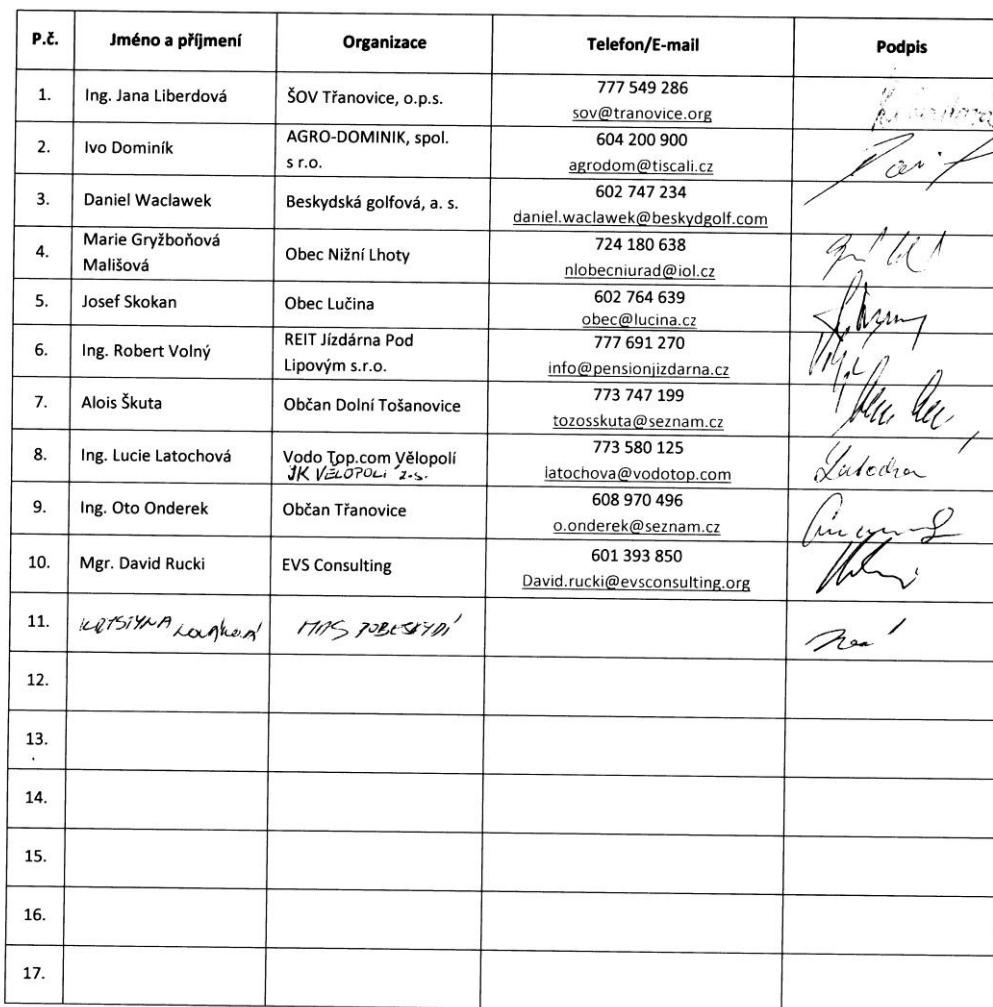 P.č. Jméno a příjmení Organizace Telefon/E-mail Podpis
1. Ing. Jana Liberdová ŠOV Třanovice, o.p.s. 777 549 286
sov@tranovice.org
2. Ivo Dominík AGRO-DOMINIK, spol. 604 200 900
s r.o. agrodom@tiscali.cz
3. Daniel Waclawek Beskydská golfová, a. s. 602 747 234
daniel.waclawek@beskydgolf.com
4. Marie Gryžboňová Obec Nižní Lhoty 724 180 638
Mališová nlobecniurad@iol.cz
5. Josef Skokan Obec Lučina 602 764 639
obec@lucina.cz
6. Ing. Robert Volný REIT Jízdárna Pod 777 691 270
Lipovým s.r.o. info@pensionjizdarna.cz
7. Alois Škuta Občan Dolní Tošanovice 773 747 199
tozosskuta@seznam.cz
8. Ing. Lucie Latochová Vodo Top.com Vělopolí 773 580 125
JK VĚLOPOLÍ z.s. latochova@vodotop.com
9. Ing. Oto Onderek Občan Třanovice 608 970 496
o.onderek@seznam.cz
10. Mgr. David Rucki EVS Consulting 601 393 850
David.rucki@evsconsulting.org
11. MAS POBESKYDÍ
12.
13.
14.
15.
16.
17.